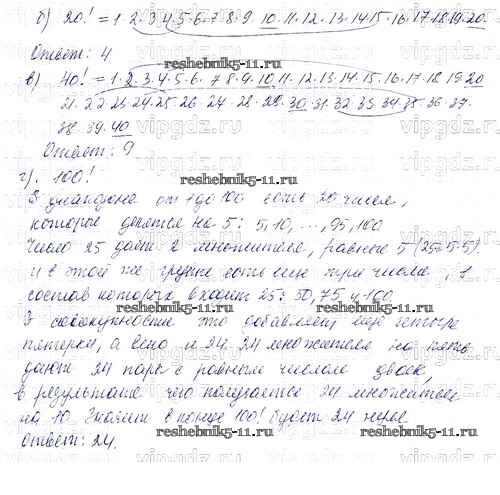 б) 20! = 1·2·3·4·5·6·7·8·9·10·11·12·13·14·15·16·17·18·19·20.
Ответ: 4
в) 40! = 1·2·3·4·5·6·7·8·9·10·11·12·13·14·15·16·17·18·19·20
21·22·23·24·25·26·27·28·29·30·31·32·33·34·35·36·37·
38·39·40
Ответ: 9
reshebnik5-11.ru
г). 100!
от 1 до 100 есть 20 чисел,
которое делятся на 5: 5, 10, ..., 95, 100
Число 25 дает 2 множителя, равные 5 (25=5·5).
и в этой же группе есть еще три числа, в
состав которых входит 25: 50, 75 и 100
reshebnik5-11.ru
В совокупности это добавляет ещё четыре
пятерки, а всего и 24. 24 множителя на пять
дают 24 пар с равным числом двоек,
в результате чего получается 24 множителя
на 10. Значит в конце 100! будет 24 нуля
Ответ: 24.
reshebnik5-11.ru
vipgdz.ru